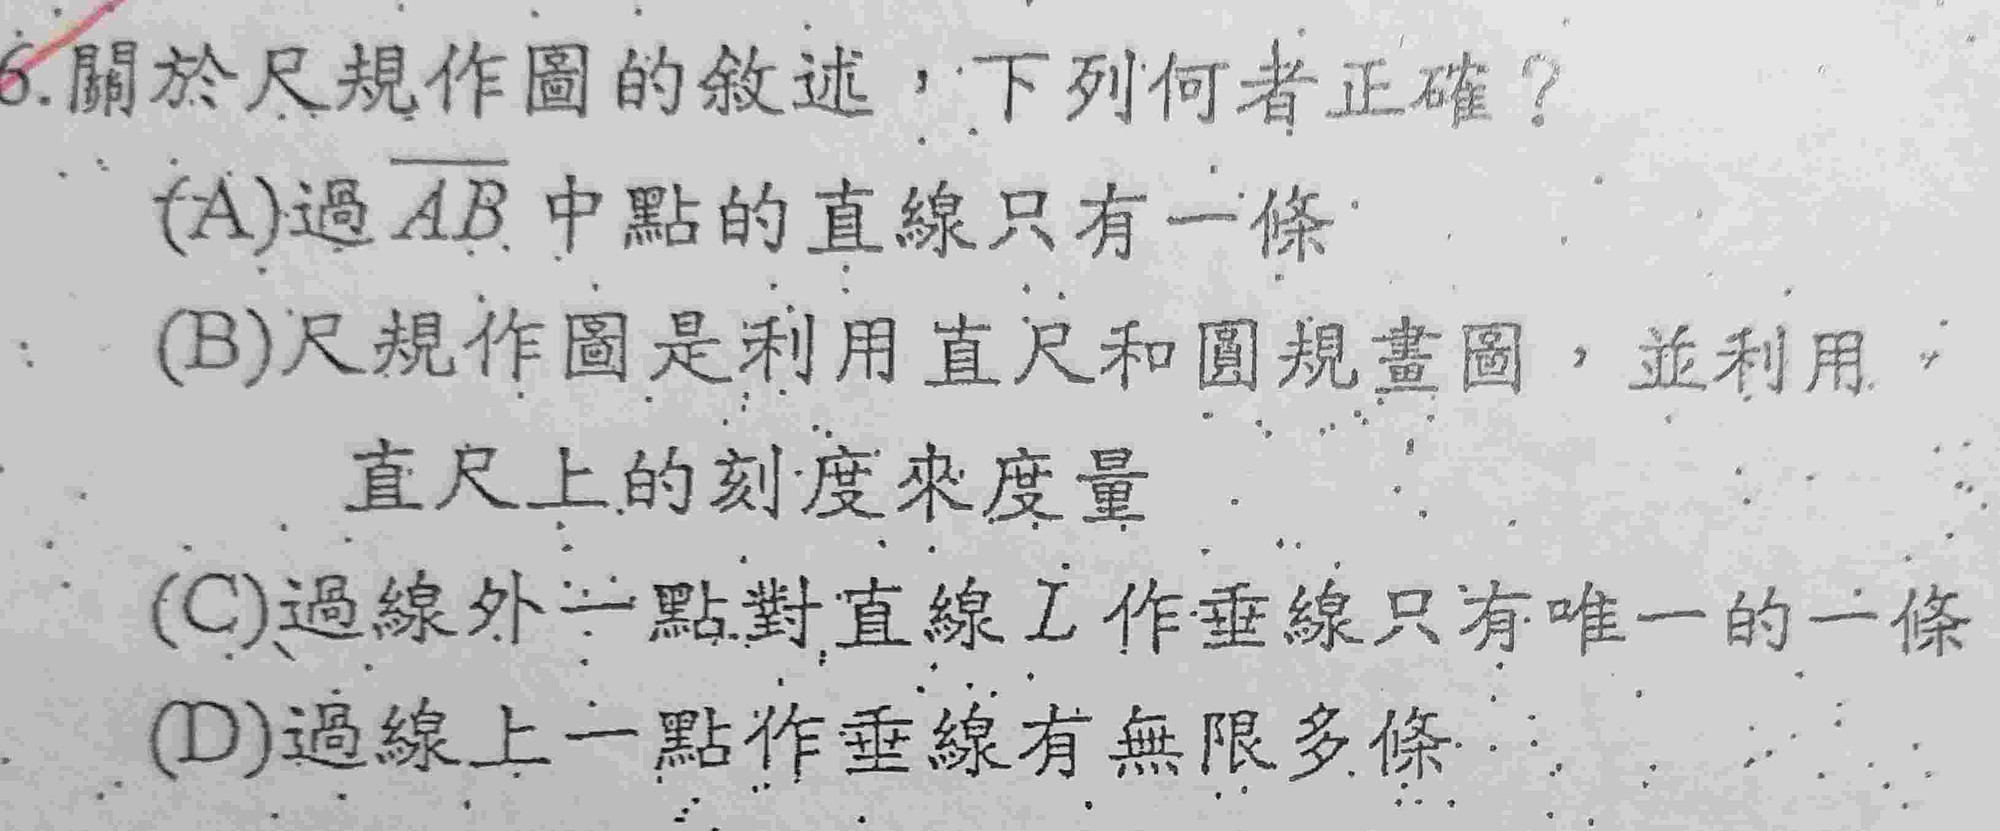 6.關於尺規作圖的敘述，下列何者正確？
(A)過 AB 中點的直線只有一條
(B)尺規作圖是利用直尺和圓規畫圖，並利用
直尺上的刻度來度量
(C)過線外一點對直線 L 作垂線只有唯一的一條
(D)過線上一點作垂線有無限多條